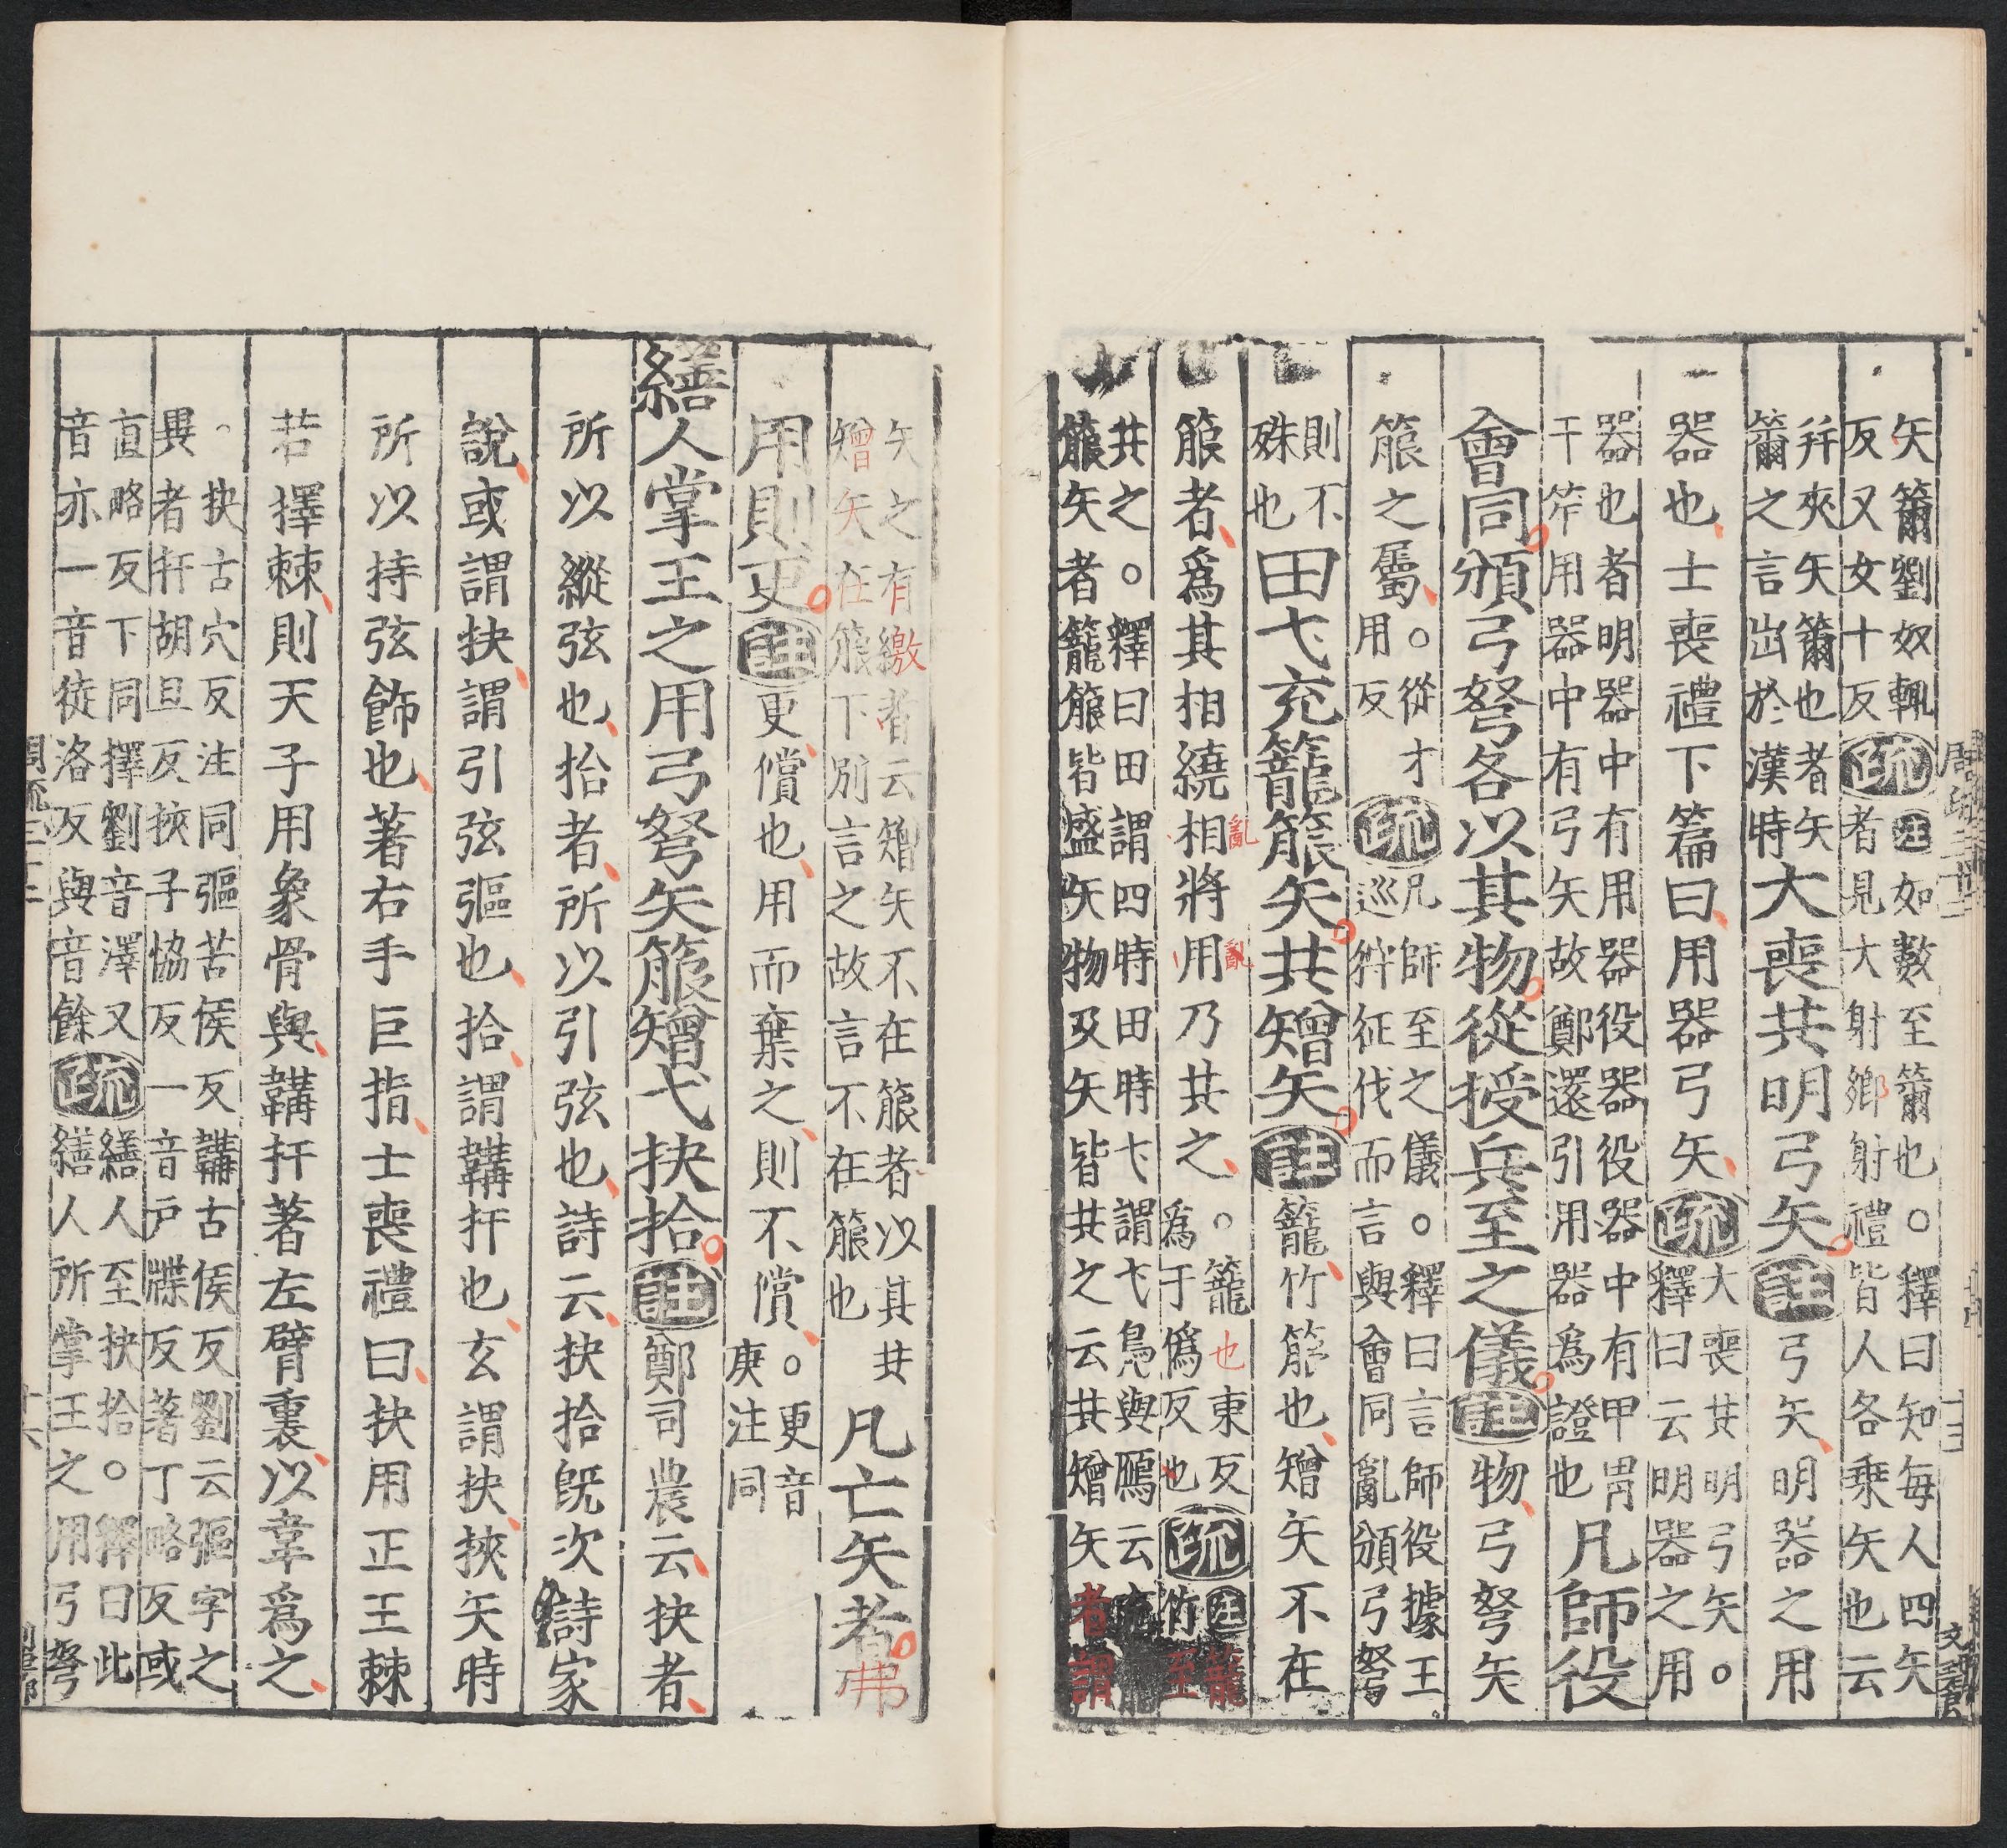 矢籋劉奴輒
反又女十反疏注如數至籋也○釋曰知每人四矢
者見大射鄉射禮皆人各乗矢也云
幷夾矢籋也者矢
籋之言出於漢時大喪共明弓矢註弓矢明器之用
器也士喪禮下篇曰用器弓矢疏大喪共明弓矢○
釋曰云明器之用
器也者明器中有用器役器役器中有甲冑
干笮用器中有弓矢故鄭還引用器為證也凡師役
會同頒弓弩各以其物從授兵至之儀註物弓弩矢
箙之屬○從才
用反疏凡師至之儀○釋曰言師役據王
巡狩征伐而言與會同亂頒弓弩
則不
殊也田弋充籠箙矢共矰矢註籠竹箙也矰矢不在
箙者爲其相繞相將用乃共之○籠東反
爲于僞反也疏注籠
竹至
共之○釋曰田謂四時田時弋謂弋鳧與鴈云充籠
箙矢者籠箙皆盛矢物及矢皆共之云共矰矢者謂
亂
亂
也
矢之有繳者云矰矢不在箙者以其共
矰矢在箙下別言之故言不在箙也凡亡矢者弗
用則更註更償也用而棄之則不償○更音
庚注同
繕人掌王之用弓弩矢箙矰弋抉拾註鄭司農云抉者
所以縱弦也拾者所以引弦也詩云抉拾旣次詩家
說或謂抉謂引弦彄也拾謂韝扞也玄謂抉挾矢時
所以持弦飾也著右手巨指士喪禮曰抉用正王棘
若擇棘則天子用象骨與韝扞著左臂裏以韋爲之
○抉古穴反注同彄苦侯反韝古侯反劉云彄字之
異者扞胡旦反挾子協反一音戶牒反著丁略反或
直略反下同擇劉音澤又
音亦一音徒洛反與音餘疏繕人至抉拾○釋曰此
繕人所掌王之用弓弩